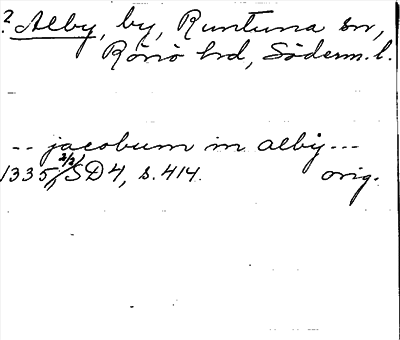 ? Alby, by, Runtuna sn,
Rönö hd, Söderm. l.
-- jacobum in alby ---
1335 2/2 SD 4, s. 414. orig.